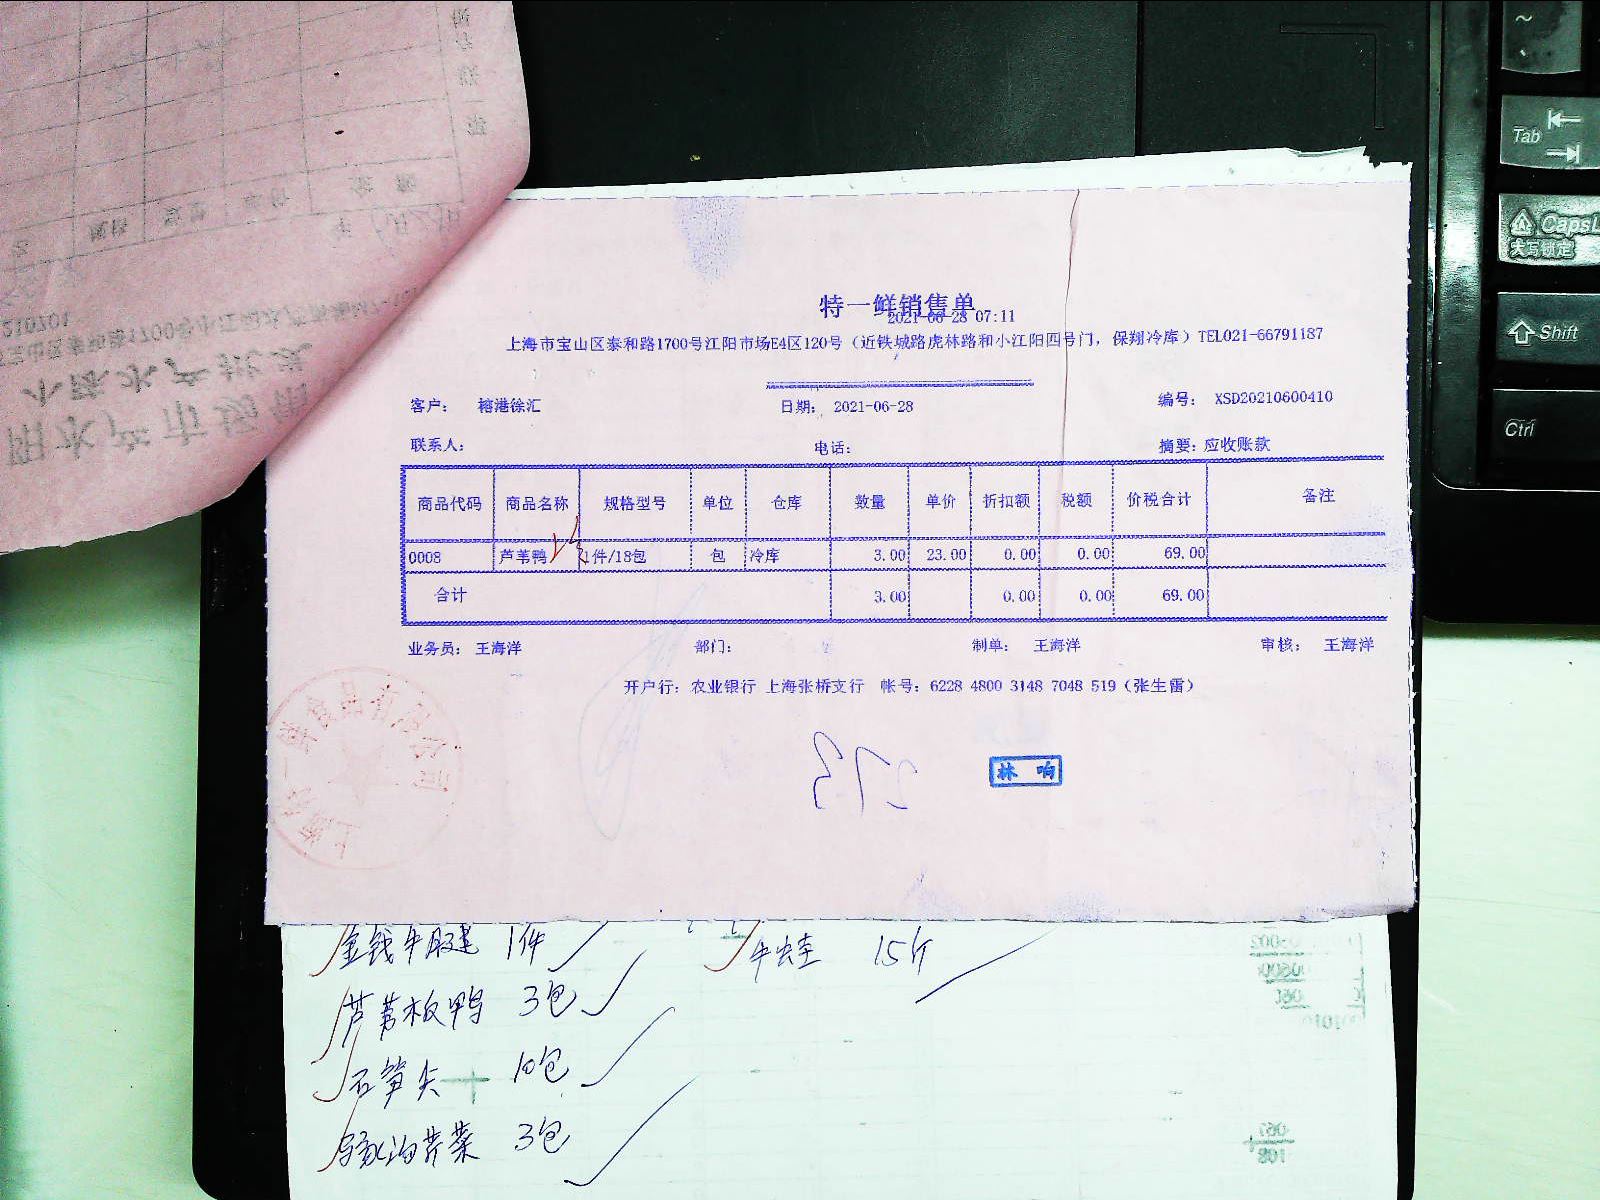 特一鲜销售单
2021-06-28 07:11
上海市宝山区泰和路1700号江阳市场E4区120号（近铁城路虎林路和小江阳四号门，保翔冷库）TEL021-66791187
客户： 榕港徐汇 日期： 2021-06-28 编号： XSD20210600410
联系人： 电话： 摘要：应收账款
商品代码 商品名称 规格型号 单位 仓库 数量 单价 折扣额 税额 价税合计 备注
0008 芦苇鸭 1件/18包 包 冷库 3.00 23.00 0.00 0.00 69.00
合计 3.00 0.00 0.00 69.00
业务员： 王海洋 部门： 制单： 王海洋 审核： 王海洋
开户行：农业银行 上海张桥支行 帐号：6228 4800 3148 7048 519（张生雷）
林 响
金钱牛腱 1件 牛蛙 15斤
芦苇板鸭 3包
石笋尖 10包
3包
Tab
CapsL
大写锁定
Shift
Ctrl